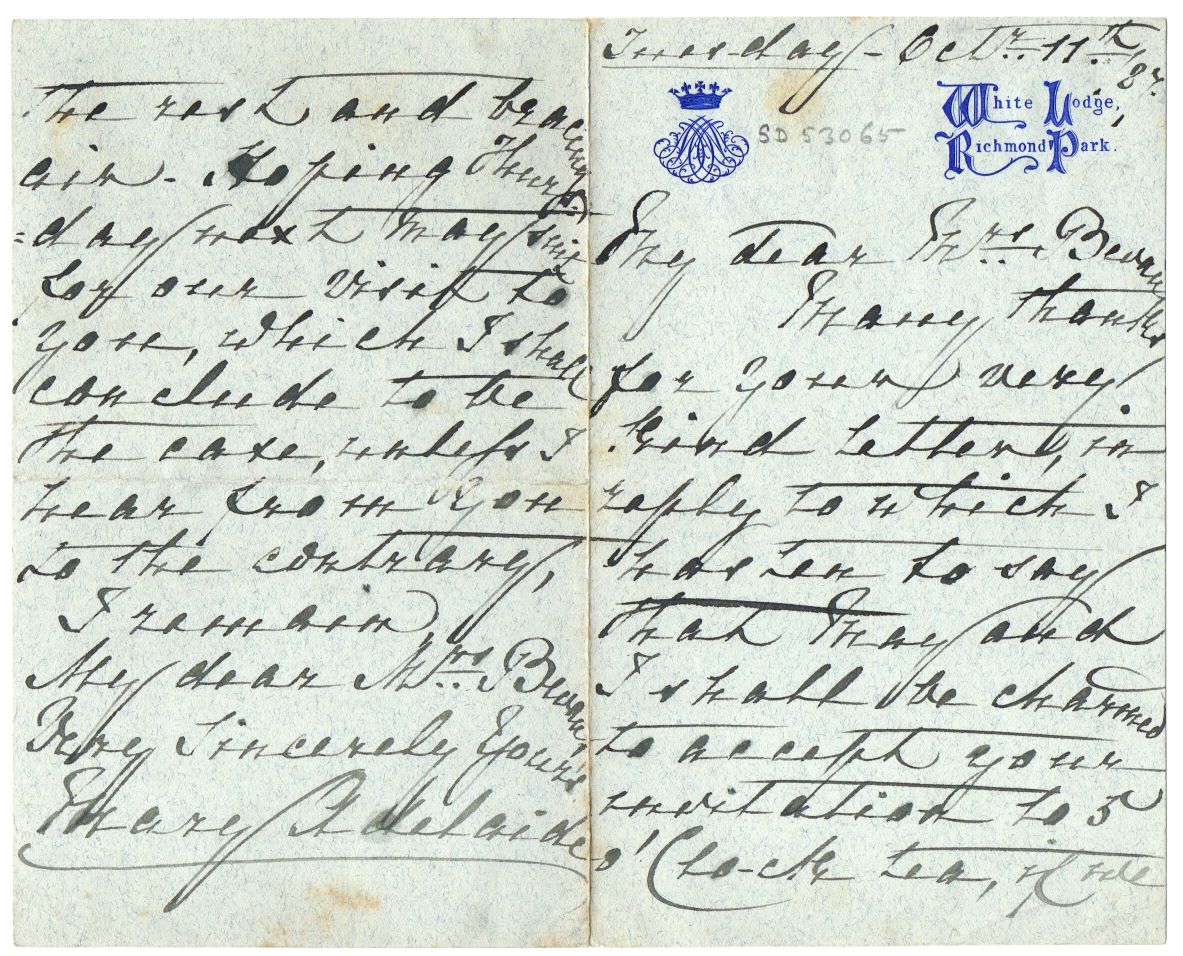 Tuesday - Octr. 11th /87.
White Lodge,
Richmond Park.
SD 53065
My dear Mrs. Bevan
Many thanks
for your very
kind letter, in
reply to which I
hasten to say
that May and
I shall be charmed
to accept your
invitation to 5
o'Clock tea, if we
the rest and bracing
air - Hoping Thurs=
=day next may suit
for our visit to
you, which I shall
conclude to be
the case, unless I
hear from you
to the contrary,
I remain
My dear Mrs. Bevan,
Very Sincerely Yours
Mary Adelaide